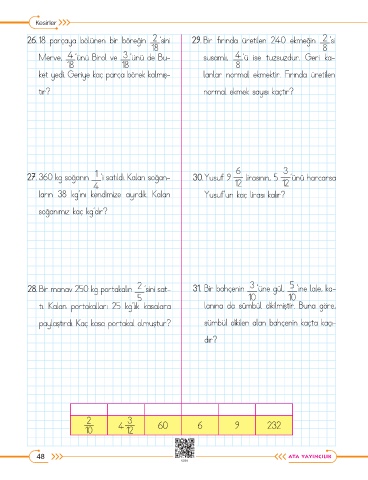 Kesirler
26. 18 parçaya bölünen bir böreğin 2/18 'sini
Merve, 4/18 'ünü Birol ve 3/18 'ünü de Bu-
ket yedi. Geriye kaç parça börek kalmış-
tır?
27. 360 kg soğanın 1/4 'i satıldı. Kalan soğan-
ların 38 kg'ını kendimize ayırdık. Kalan
soğanımız kaç kg'dır?
28. Bir manav 250 kg portakalın 2/5 'sini sat-
tı. Kalan portakalları 25 kg'lık kasalara
paylaştırdı. Kaç kasa portakal olmuştur?
29. Bir fırında üretilen 240 ekmeğin 2/8 'si
susamlı, 4/8 'ü ise tuzsuzdur. Geri ka-
lanlar normal ekmektir. Fırında üretilen
normal ekmek sayısı kaçtır?
30. Yusuf 9 6/12 lirasının, 5 3/12 ünü harcarsa
Yusuf'un kaç lirası kalır?
31. Bir bahçenin 3/10 'üne gül, 5/10 'ine lale, ka-
lanına da sümbül dikilmiştir. Buna göre,
sümbül dikilen alan bahçenin kaçta kaçı-
dır?
2/10 4 3/12 60 6 9 232
48
ATA YAYINCILIK